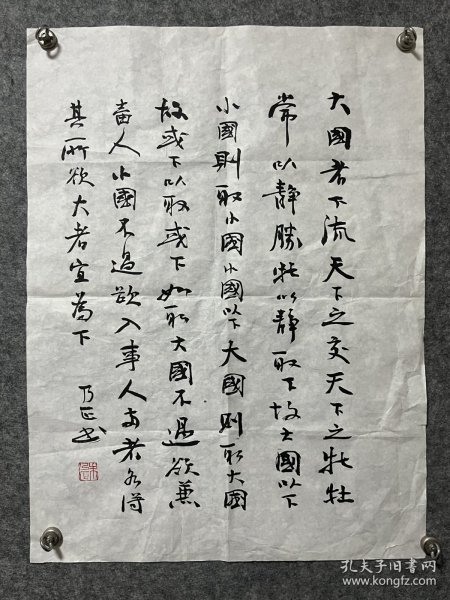 大國者下流天下之交天下之牝牡
常以靜勝牝以靜取下故大國以下
小國則取小國小國以下大國則取大國
故或下以取或下如取大國不過欲兼
畜人小國不過欲入事人兩者各得
其所欲大者宜為下
乃正書
孔夫子旧书网
www.kongfz.com